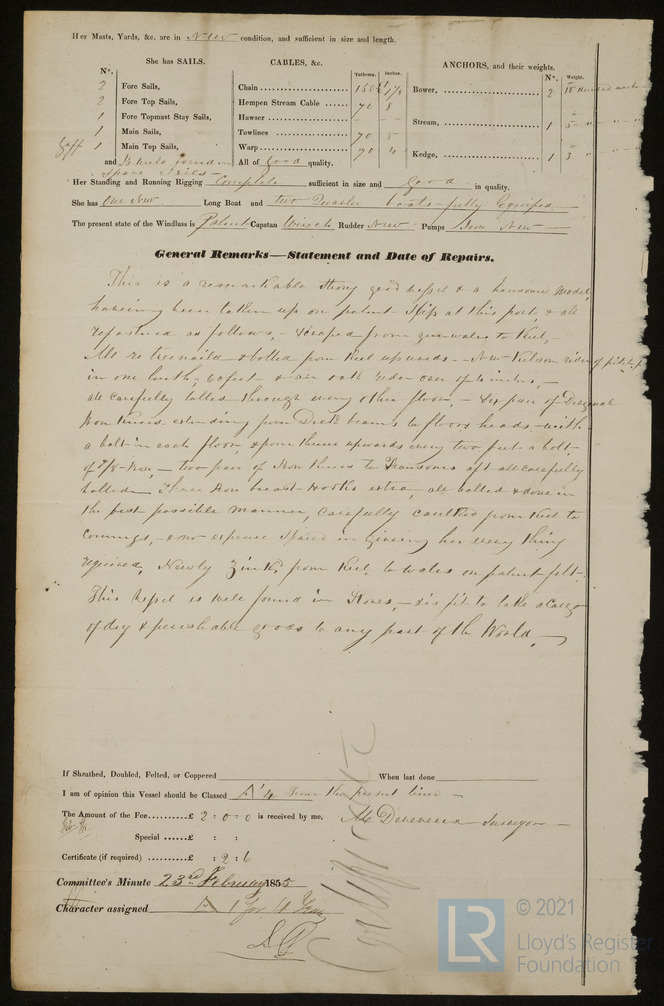 Her Masts, Yards, &c. are in New condition, and sufficient in size and length.
She has SAILS.
CABLES, &c.
ANCHORS, and their weights.
N°.
Fathoms.
Inches.
N°.
Weight.
2 Fore Sails,
Chain
1 1/8
Bower,
2
2 Fore Top Sails,
Hempen Stream Cable
70
8
1 Fore Topmast Stay Sails,
Hawser
Stream,
1
5 " "
1 Main Sails,
Towlines
70
5
Gaff 1 Main Top Sails,
Warp
90
4
Kedge,
1
3 " "
and
All of good quality.
Spare Sails
Her Standing and Running Rigging Complete sufficient in size and good in quality.
She has One New Long Boat and two Quarter boats fully Equiped
The present state of the Windlass is Patent Capstan Winch Rudder New Pumps Iron New
General Remarks—Statement and Date of Repairs.
This is a remarkable strong good vessel & a hansome Model,
haveing been taken up on patent Slip at this port, & all
refastened as follows, - Scraped from gunwales to Keel, -
All retreenaild & bolted from Keel upwards - New Kelson rider of pitch
in one lenth, feet & an oak rider over of inches, -
all carefully bolted through every other floor, - Six pair of Diagonal
Iron Knees extending from Deck beams to floors heads - with
a bolt in each floor & from thence upwards every two feet a bolt
of 7/8 Iron, - two pair of Iron Knees to Transoms aft all carefully
bolted Three Iron breast Hooks extra, all bolted & done in
the best possible manner, Carefully caulked from Keel to
Comings, - & no expence Spared in Giveing her every thing
required, Newly Zink'd from Keel to Wales on patent felt -
This Vessel is well found in Stores, - & is fit to take a Cargo
of dry & perishable goods to any part of the World
If Sheathed, Doubled, Felted, or Coppered
When last done
I am of opinion this Vessel should be Classed A 1 4 from the present time
The Amount of the Fee......£ 2 : 0 : 0 is received by me,
Surveyor
Special ......£ : :
Certificate (if required) ..........£ : 2 : 6
Committee's Minute 23rd February 1855
Character assigned A 1 for 4 Years
Certificate
LR
© 2021
Lloyd's Register
Foundation